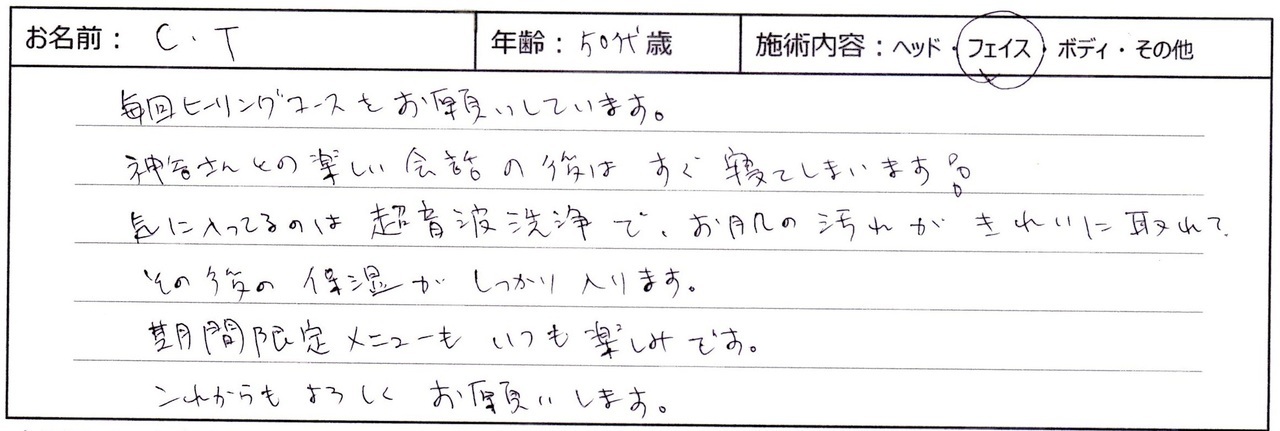 お名前： C・T 年齢：50代歳 施術内容：ヘッド・フェイス・ボディ・その他
毎回ヒーリングコースをお願いしています。
神谷さんとの楽しい会話の後は すぐ寝てしまいます
気に入ってるのは超音波洗浄で、お肌の汚れがきれいに取れて
その後の保湿がしっかり入ります。
期間限定メニューもいつも楽しみです。
これからもよろしくお願いします。